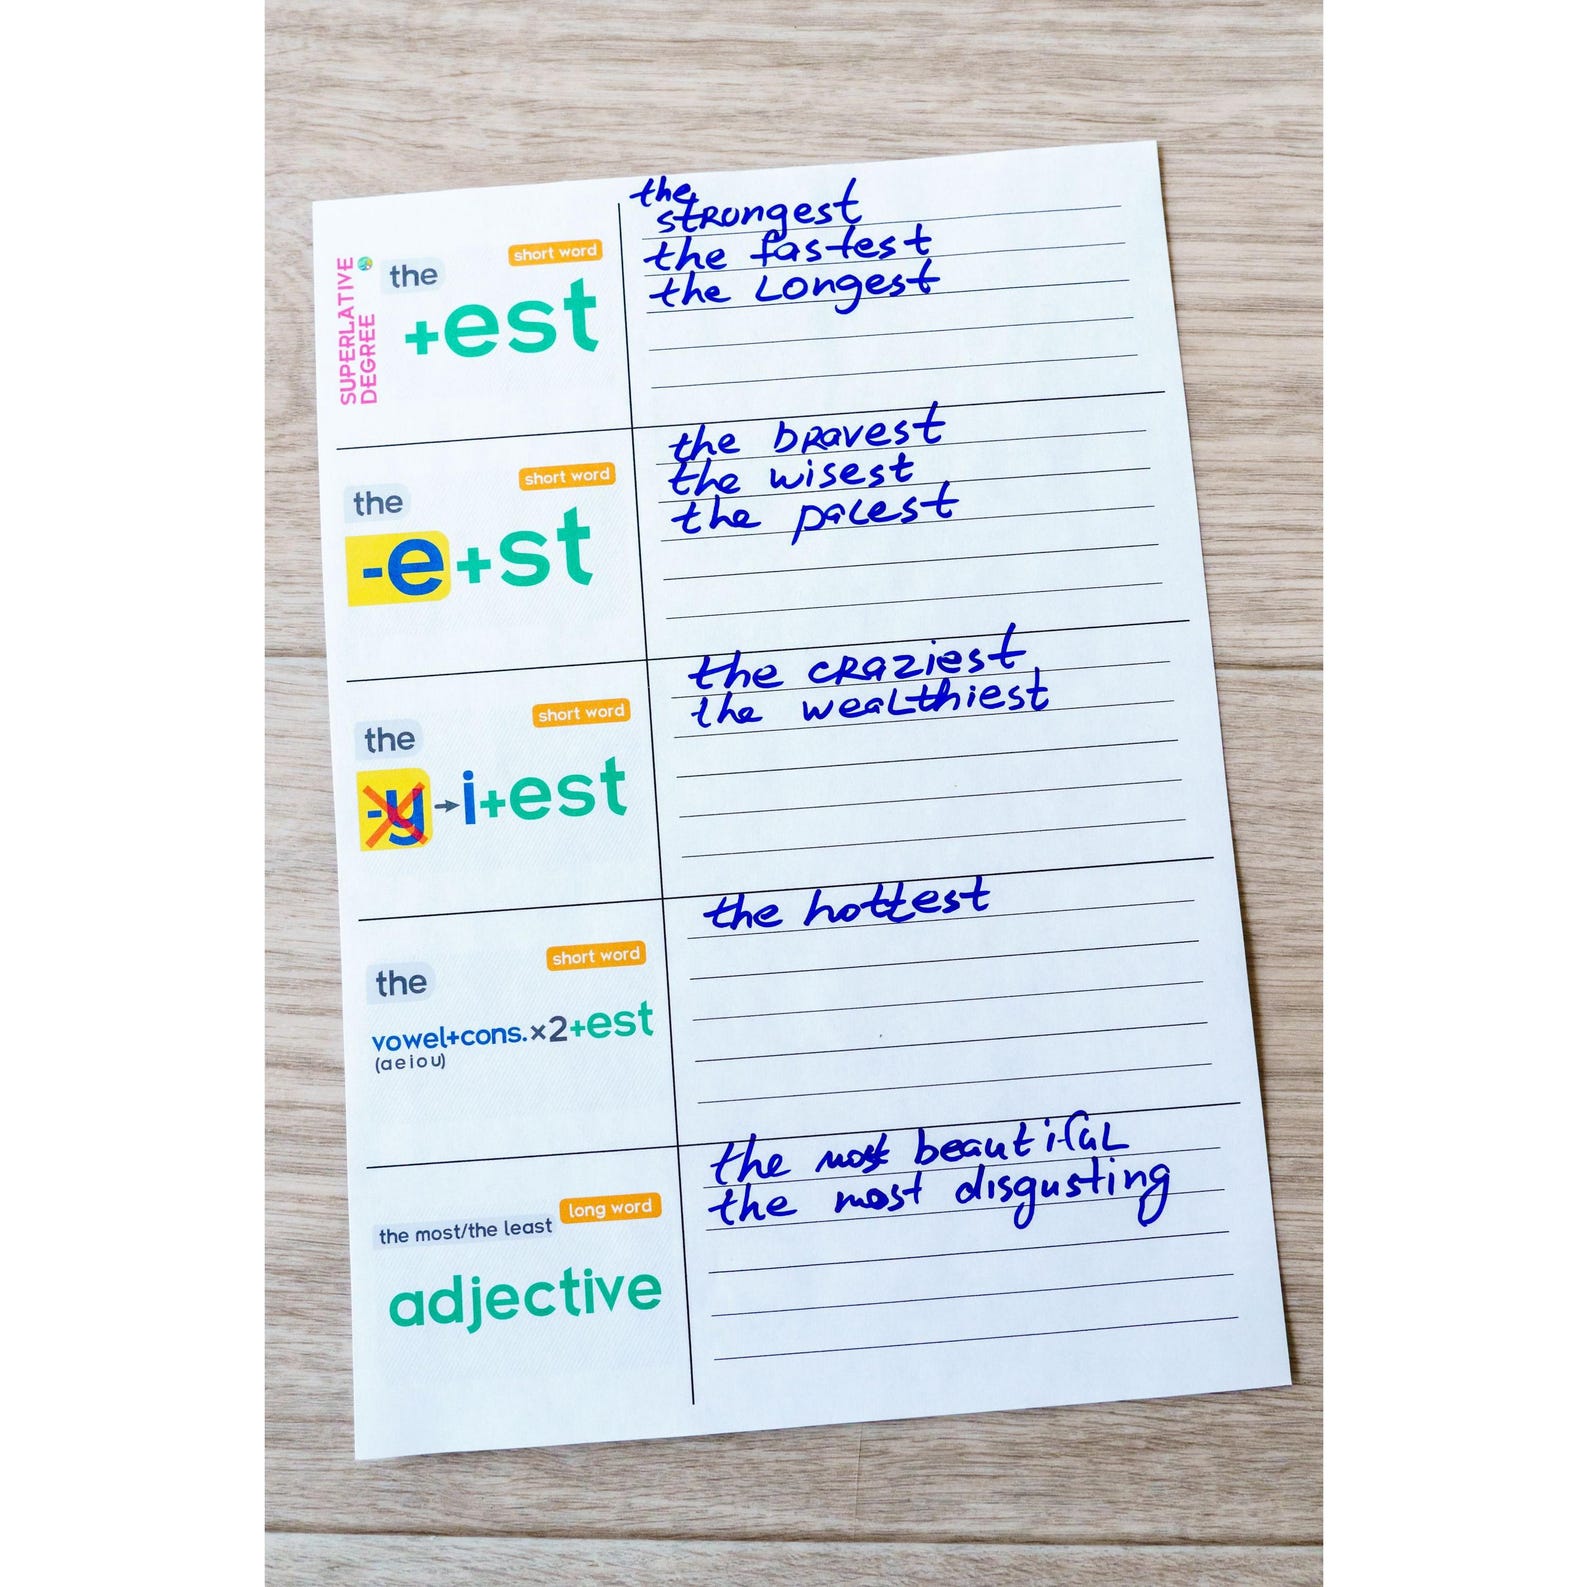 SUPERLATIVE
DEGREE
the
short word
+est
the
strongest
the fastest
the Longest
the
short word
-e+st
the bravest
the wisest
the palest
the
short word
-y→i+est
the craziest
the wealthiest
the
short word
vowel+cons.×2+est
(a e i o u)
the hottest
the most/the least
long word
adjective
the most beautiful
the most disgusting